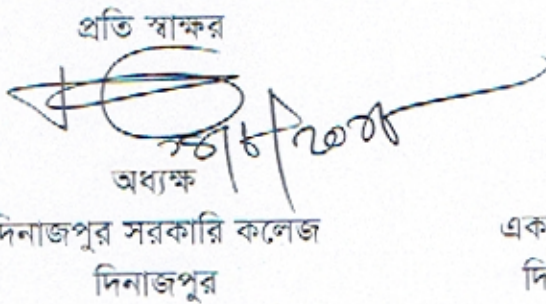 প্রতি স্বাক্ষর
অধ্যক্ষ
দিনাজপুর সরকারি কলেজ
দিনাজপুর